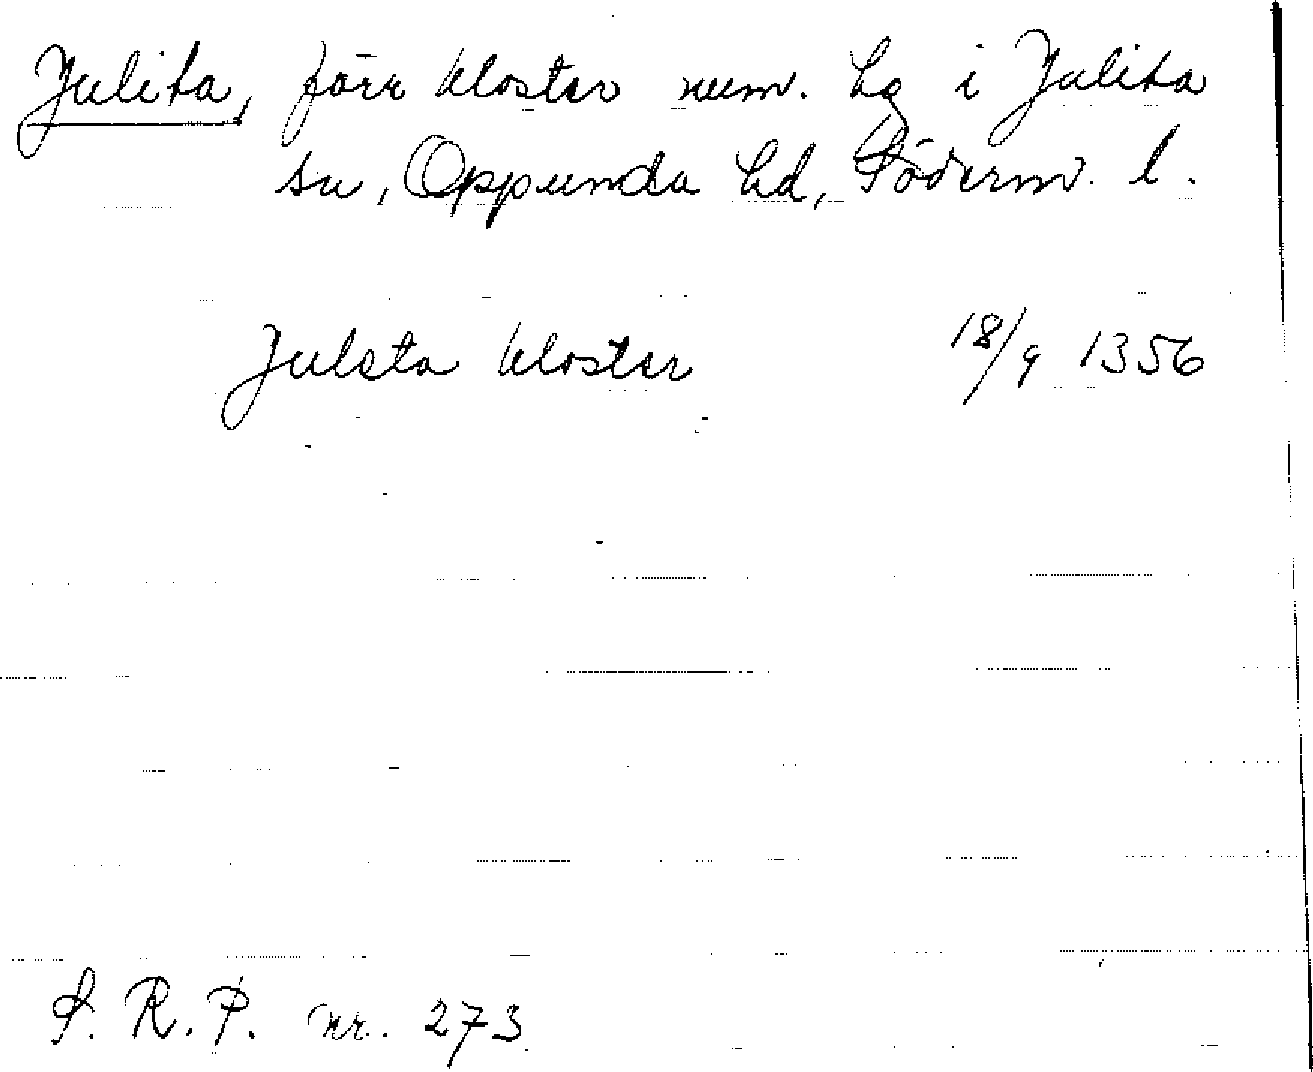 Julita, förr kloster num. hg i Julita
sn, Oppunda hd, Söderm. l.
Julsta kloster 18/9 1356
S. R. P. nr. 273